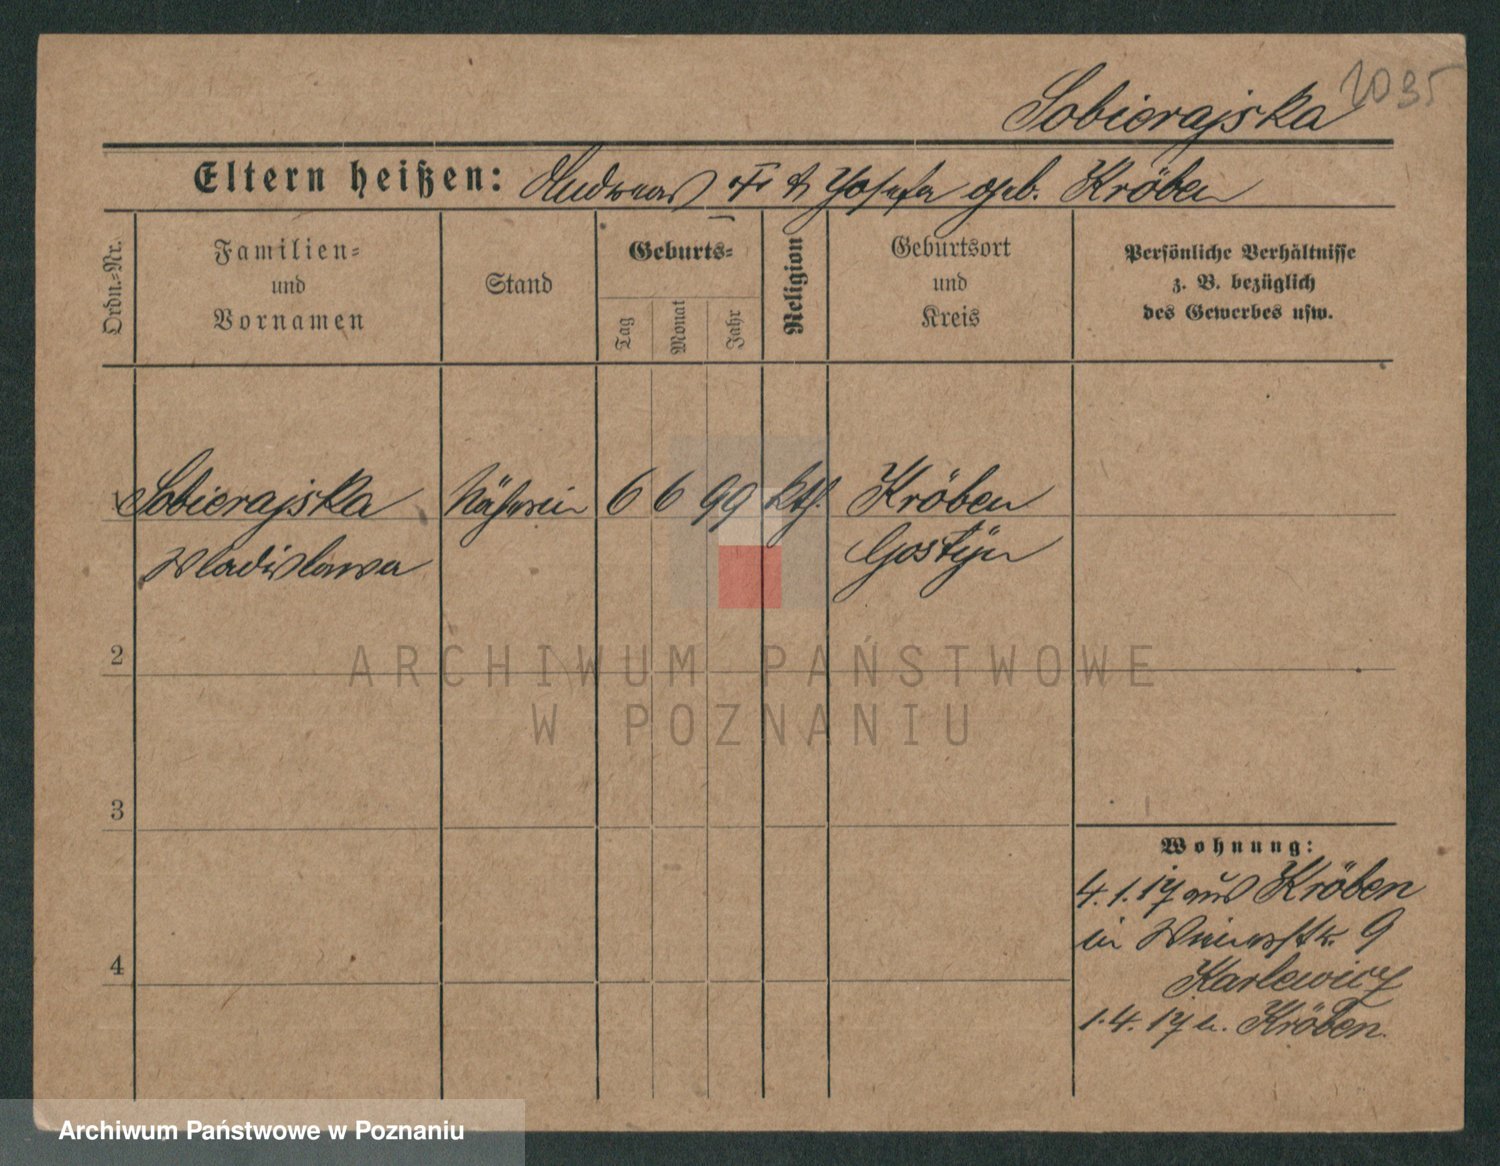 Sobierajska 1035
Eltern heißen: Andreas Fr & Josefa geb. Kröben
Ordn.-Nr.
Familien-
und
Vornamen
Stand
Geburts-
Tag
Monat
Jahr
Religion
Geburtsort
und
Kreis
Persönliche Verhältnisse
z. B. bezüglich
des Gewerbes usw.
1 Sobierajska Näherin 6 6 99 kth. Kröben
Wladislawa Gostyn
2
3
4
Wohnung:
4.1.17 aus Kröben
in 9
Karlewicz
1.4.17 n. Kröben.
ARCHIWUM PAŃSTWOWE
W POZNANIU
Archiwum Państwowe w Poznaniu